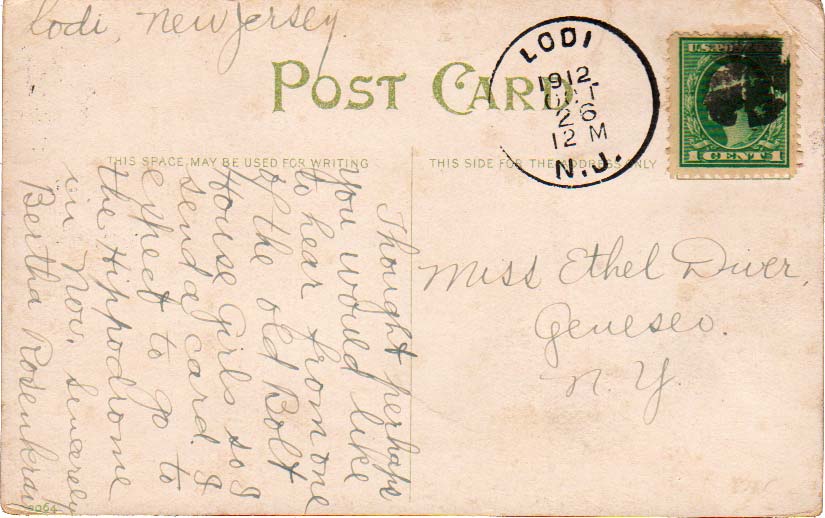 Lodi, New Jersey
POST CARD
LODI
1912
OCT
26
12 M
N.J.
U.S. POSTAGE
1 CENT 1
THIS SPACE MAY BE USED FOR WRITING
THIS SIDE FOR THE ADDRESS ONLY
Thought perhaps
you would like
to hear from one
of the old Bolt
House Girls so I
send a card. I
expect to go to
the Hippodrome
in Nov. Sincerely
Bertha Rosenkran
Miss Ethel Diver,
Geneseo.
N. Y.